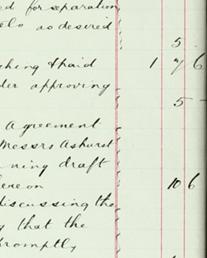 ed for separation
els as desired
5 .
ching & paid 1 7 6
der approving
5 -
Agreement
Messrs Ashurst
ning draft
hereon 10 6
discussing the
y that the
promptly